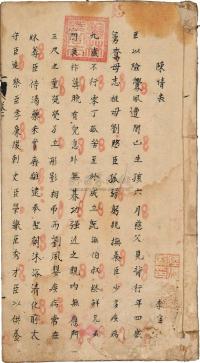 陳情表
李密
臣以險釁夙遭閔凶生孩六月慈父見背行年四歲
舅奪母志祖母劉愍臣孤弱躬撫養臣少多疾病
九歲不行零丁孤苦至於成立既無伯叔終鮮兄弟
門衰祚薄晚有兒息外無朞功強近之親內無應門
五尺之童煢煢孑立形影相弔而劉夙嬰疾病常在
牀蓐臣侍湯藥未嘗廢離逮奉聖朝沐浴清化前太
守臣逵察臣孝廉後刺史臣榮舉臣秀才臣以供養